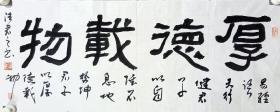 厚德載物
易經
語
天行
健君
子
以自
強不
息地
勢坤
君子
以厚
德載
物